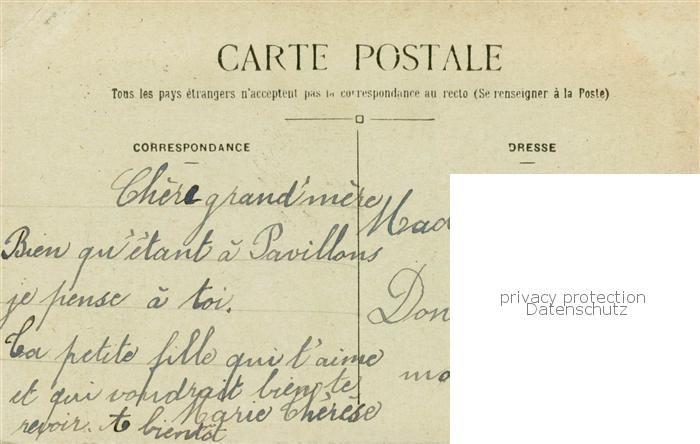 CARTE POSTALE
Tous les pays étrangers n'acceptent pas la correspondance au recto (Se renseigner à la Poste)
CORRESPONDANCE
Chère grand'mère
Bien qu'étant à Pavillons
je pense à toi.
Ta petite fille qui t'aime
et qui voudrait bien te
revoir. A bientôt
Marie Chérèse
DRESSE
Mad
Don
mo
privacy protection
Datenschutz